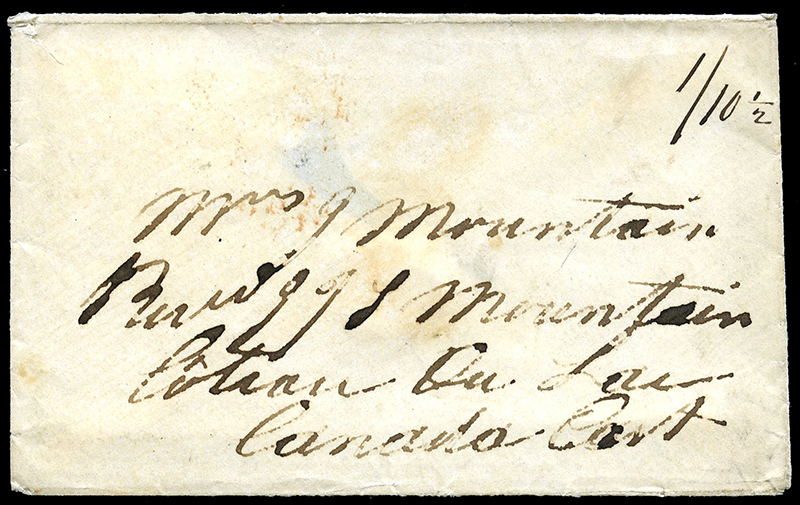 1/10 ½
Mrs J Mountain
Revd J J S Mountain
Côteau Du Lac
Canada East